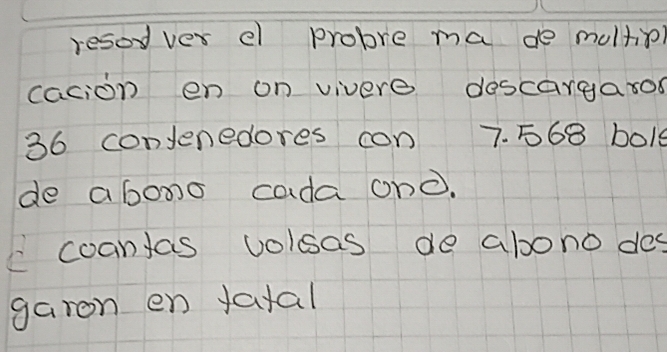 resod ver el probre ma de multipl
cación en on vivero descargaron
36 contenedores con 7.568 bols
de abono cada ono.
¿ coantas volsas de abono des
garon en tatal